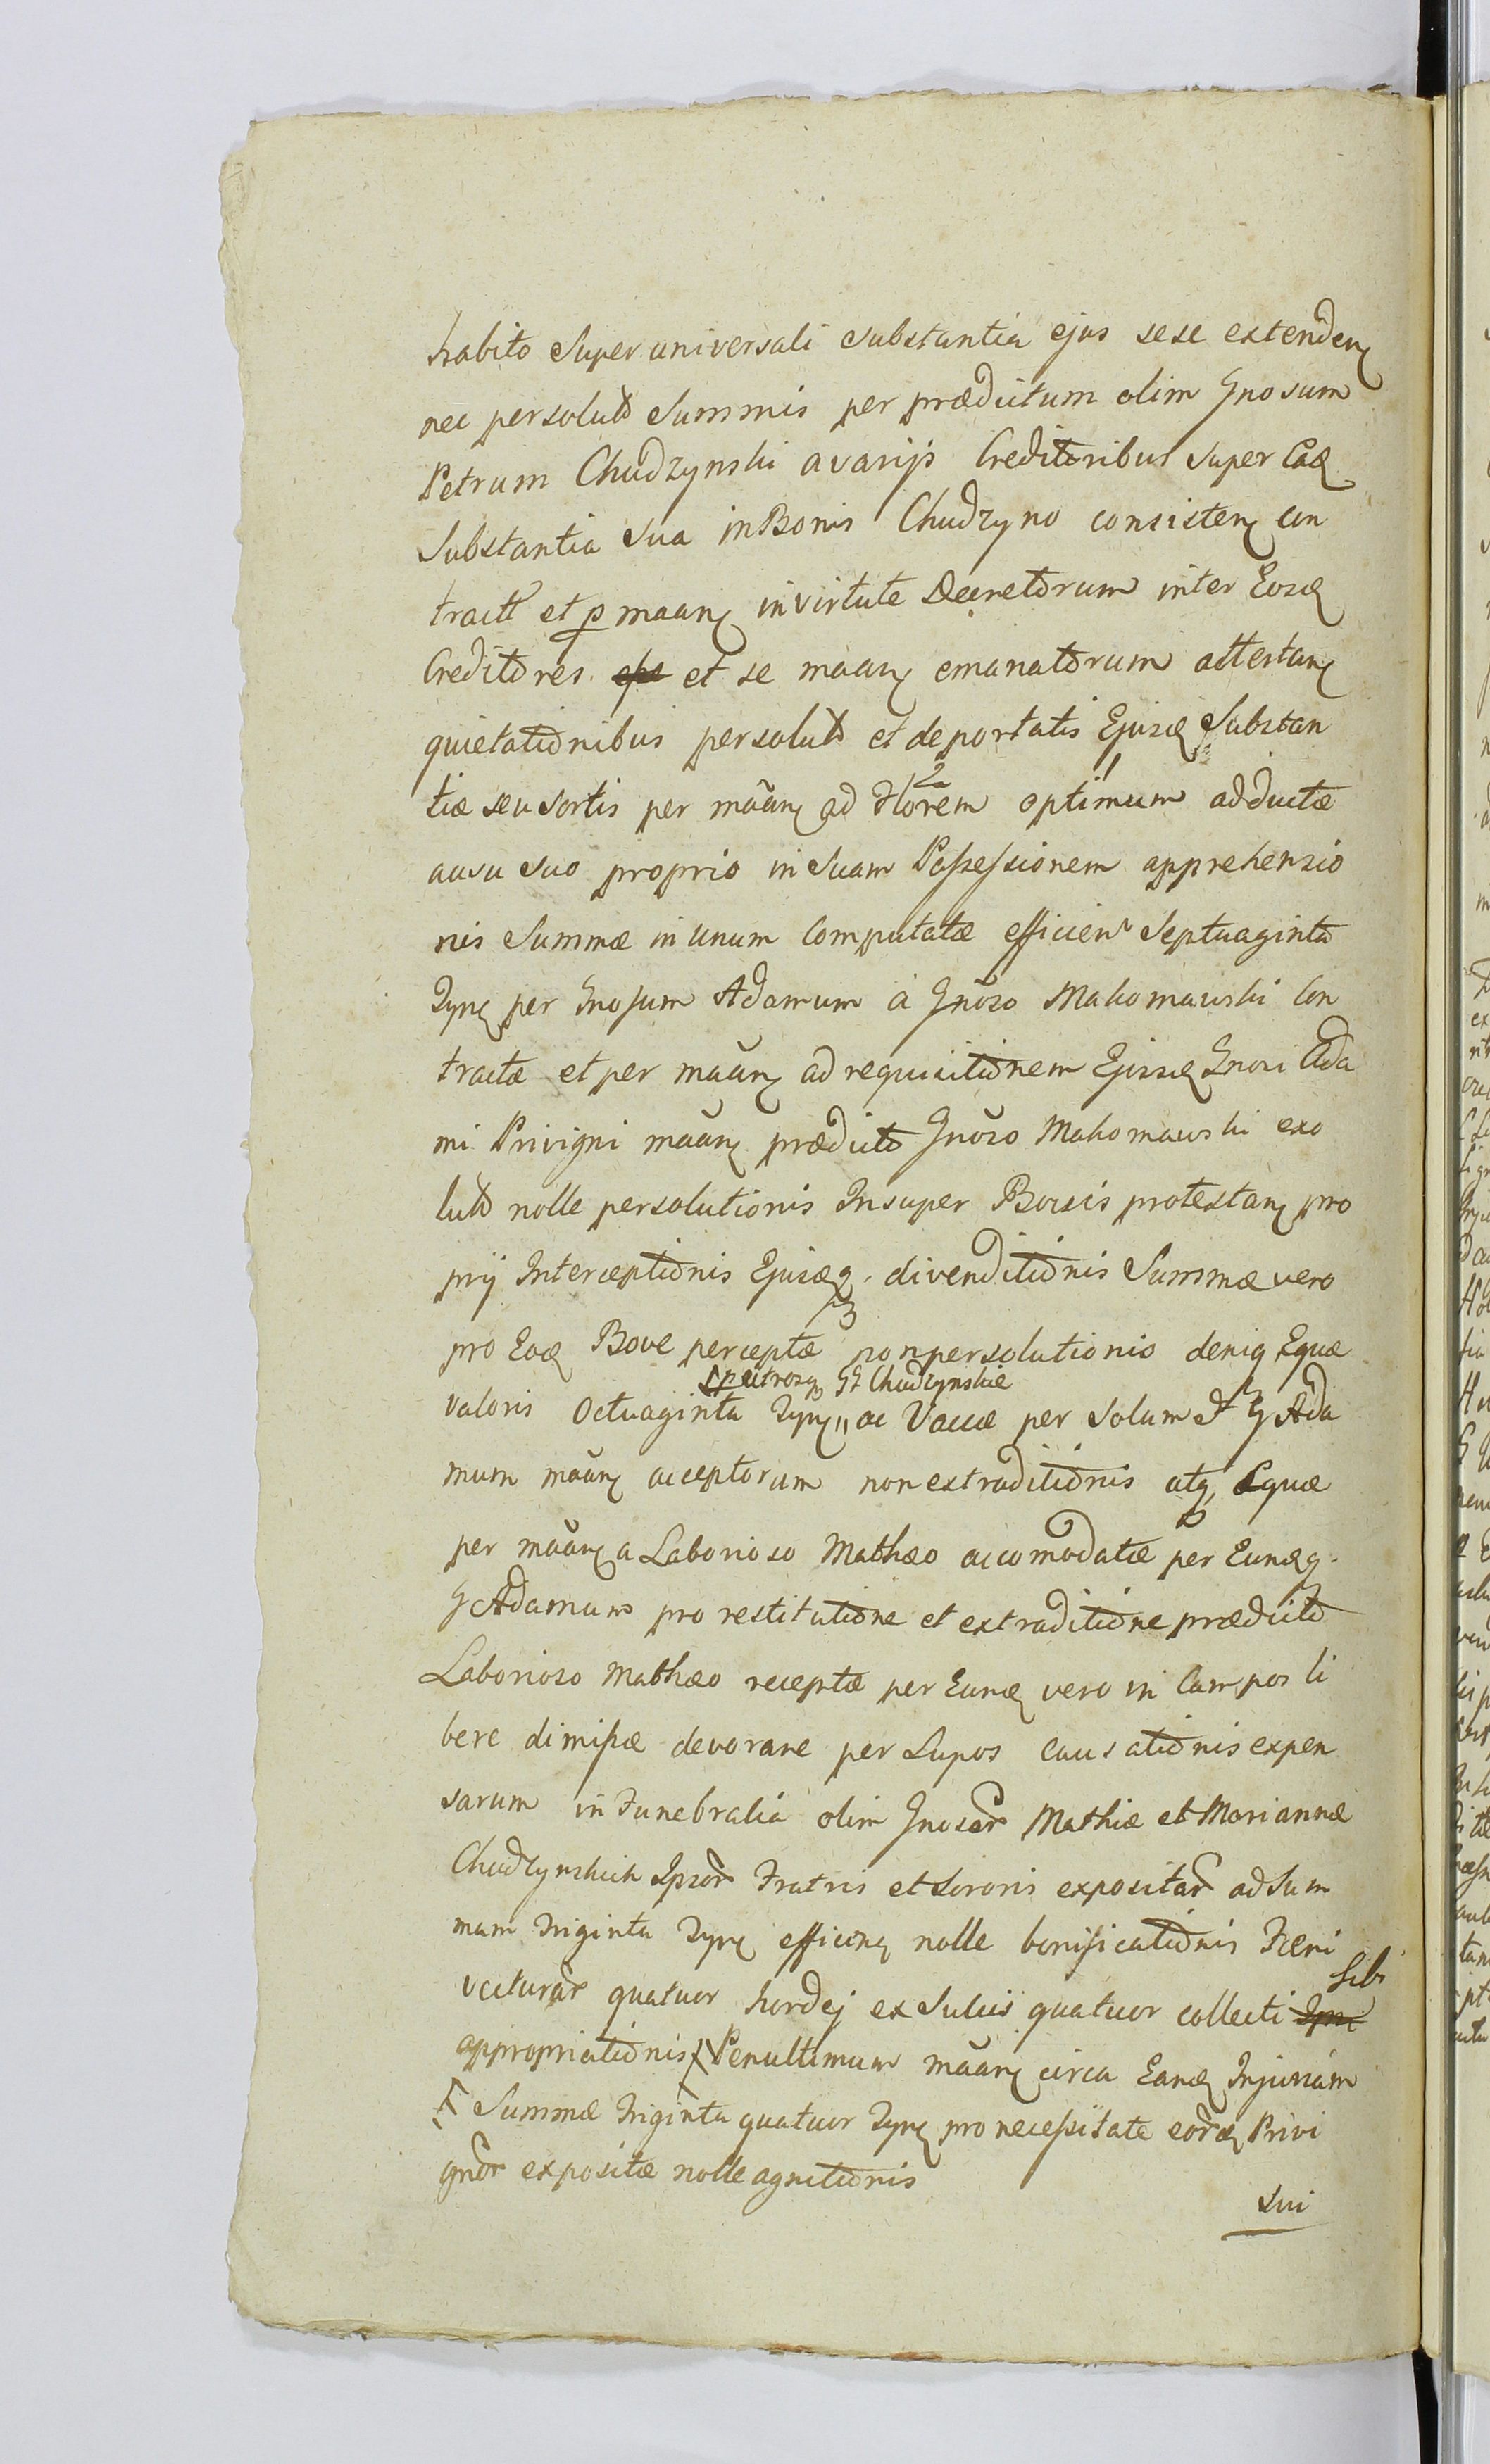 habito Super universali substantia ejus sese extenden
nec persolut Summis per prædictum olim Gnosum
Petrum Chudzynski a varijs Creditoribus super Ead
Substantia sua in Bonis Chudzyno consisten con
tract et p maan in virtute Decretorum inter Eosd
Creditores et se maan emanatorum attestan
quietationibus persolut et deportatis Ejusd Substan
tiæ seu Sortis per maan ad florem 2 optimum 1 adductæ
ausu suo proprio in suam Possessionem apprehensio
nis Summæ in unum Computatæ efficien Septuaginta
Tynf per Gnosum Adamum à Gnoso Makomawski Con
tractæ et per maan ad requisitionem Ejusd Gnosi Ada
mi Privigni maan prædicto Gnoso Makomawski exo
lut nolle persolutionis Insuper Bovis protestan pro
prij Interceptionis Ejusdq divenditionis Summæ vero
pro Eod Bove perceptæ non persolutionis deniq Equæ
Chudzynskie
valoris Octuaginta Tynf ac Vaccæ per Solum et G Ada
mum maan acceptorum non extraditionis atq Equæ
per maan a Laborioso Mathæo accomodatæ per Eundq
G Adamum pro restitutione et extraditione prædicto
Laborioso Mathæo receptæ per Eund vero in Campos li
bere dimissæ devorare per Lupos causationis expen
sarum in Funebralia olim Gnosor Mathiæ et Mariannæ
Chudzynskich Ipsor Fratris et Sororis expositar ad Sum
mam Triginta Tynf efficien nolle bonificationis Fæni
Sibi
vecturar quatuor hordej ex Sulcis quatuor collecti Ipsi
appropriationis Penultimum maan circa Eand Injuriam
Summæ Triginta quatuor Tynf pro necessitate eord Privi
gnor expositæ nolle agnitionis
Sui